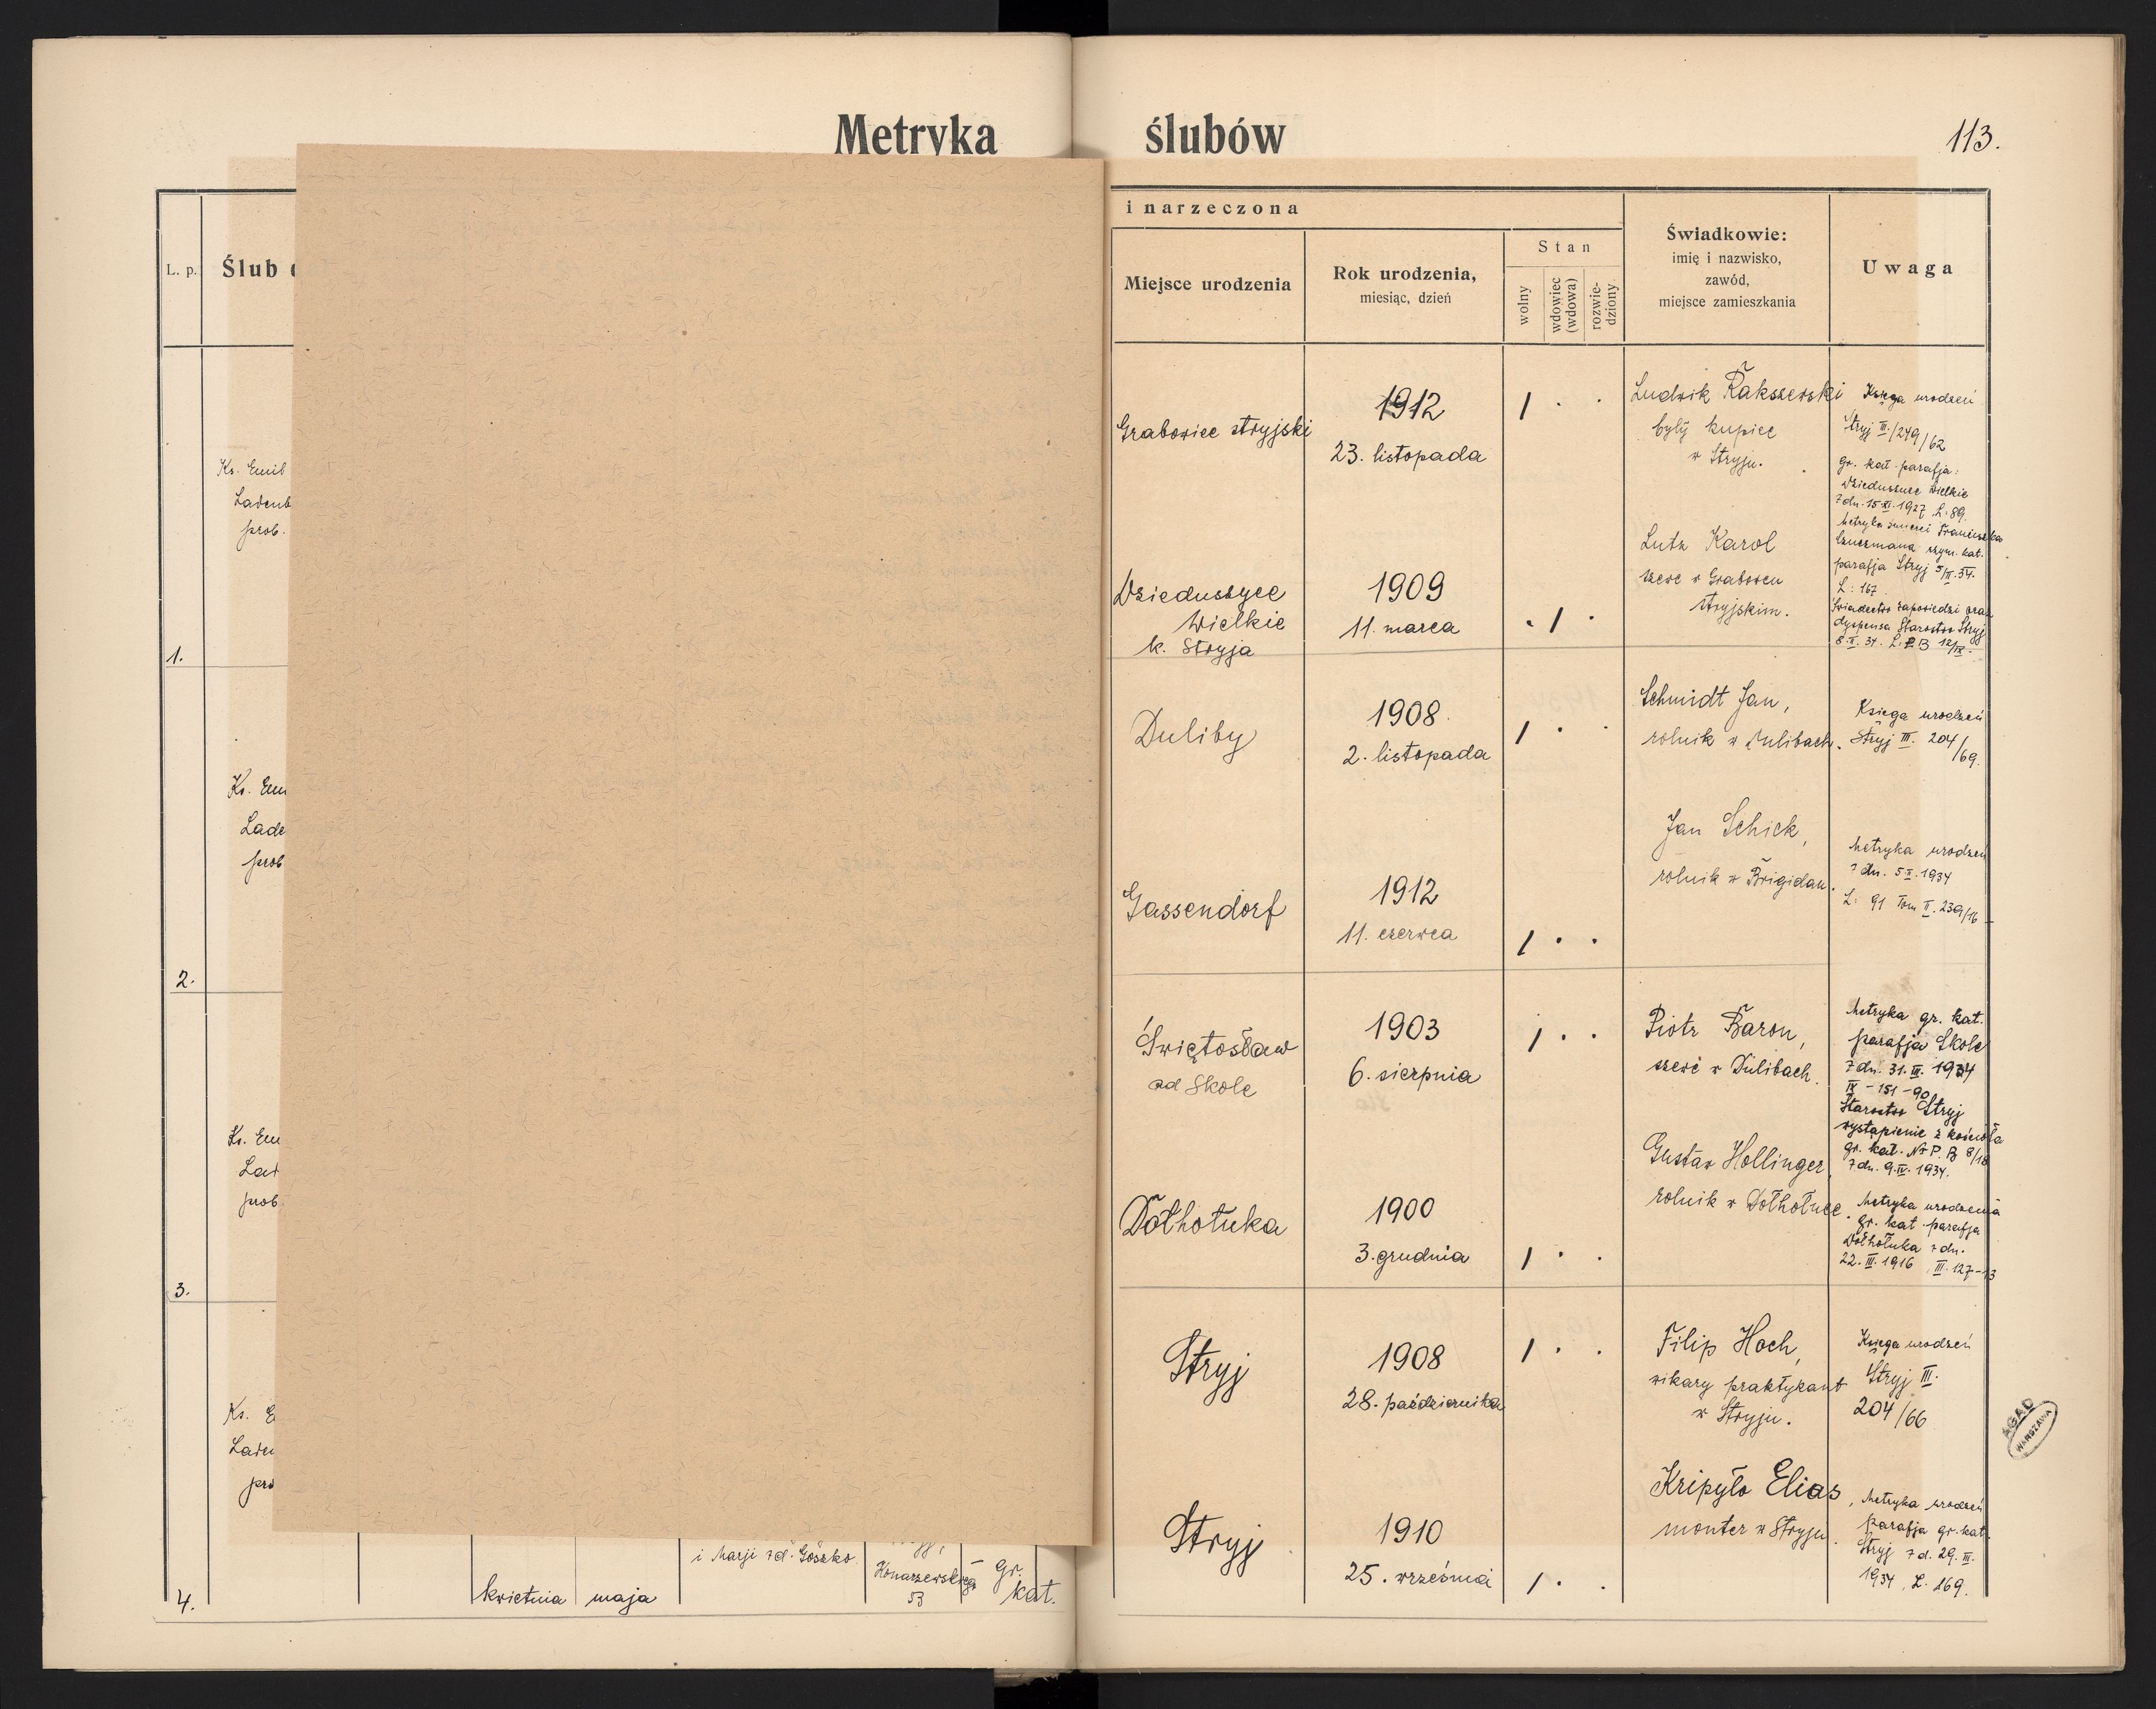 Metryka ślubów
113.
L. p.
Ślub
i narzeczona
Miejsce urodzenia
Rok urodzenia,
miesiąc, dzień
Stan
wolny
wdowiec
(wdowa)
rozwie-
dziony
Świadkowie:
imię i nazwisko,
zawód,
miejsce zamieszkania
Uwaga
1.
Ks. Emil
Ladenb
prob.
Grabowiec stryjski
1912
23. listopada
1 . .
Ludwik Bakszewski
były kupiec
w Stryju.
Księga urodzeń
Stryj III./249/62
gr. kat. parafja:
Dzieduszyce Wielkie
z dn. 15.XI.1927 L. 89.
Dzieduszyce
Wielkie
k. Stryja
1909
11. marca
. 1 .
Lutz Karol
szewc w Grabowcu
stryjskim.
Metryka śmierci Franciszka
rzym. kat.
parafja Stryj 5/II.34.
L: 167.
Świadectwo zapowiedzi oraz
dyspensa Starostwo Stryj
2.
Ks. Em
Lade
prob
Duliby
1908
2. listopada
1 . .
Schmidt Jan,
rolnik w Dulibach.
Księga urodzeń
Stryj III. 204/69.
Gassendorf
1912
11. czerwca
1 . .
Jan Schick,
rolnik w Brigidau.
Metryka urodzeń
z dn. 5.II.1934
L: 91 Tom II. 239/16
3.
Ks. Em
Lad
prob.
Świętosław
ad Skole
1903
6. sierpnia
1 . .
Piotr Baron,
szewc w Dulibach.
Metryka gr. kat.
parafja Skole
z dn. 31.III.1934
IX-151-90
Starostwo Stryj
wystąpienie z kościoła
gr. kat. Nr P. B 8/18
z dn. 9.IV.1934.
Dołhołuka
1900
3. grudnia
1 . .
Gustaw Hollinger,
rolnik w Dołhołuce.
Metryka urodzenia
gr. kat. parafja
Dołhołuka z dn.
22.III.1916 III.127-13
4.
Ks. E
Laden
pro
kwietnia
maja
i Marji z d. Goszko.
Konarzewskiego
53
gr.
kat.
Stryj
1908
28. października
1 . .
Filip Hoch,
wikary praktykant
w Stryju.
Księga urodzeń
Stryj III.
204/66
Stryj
1910
25. września
1 . .
Kripyło Elias,
monter w Stryju.
Metryka urodzeń
parafja gr. kat.
Stryj z d. 29.III.
1934, L. 269.
AGAD
WARSZAWA